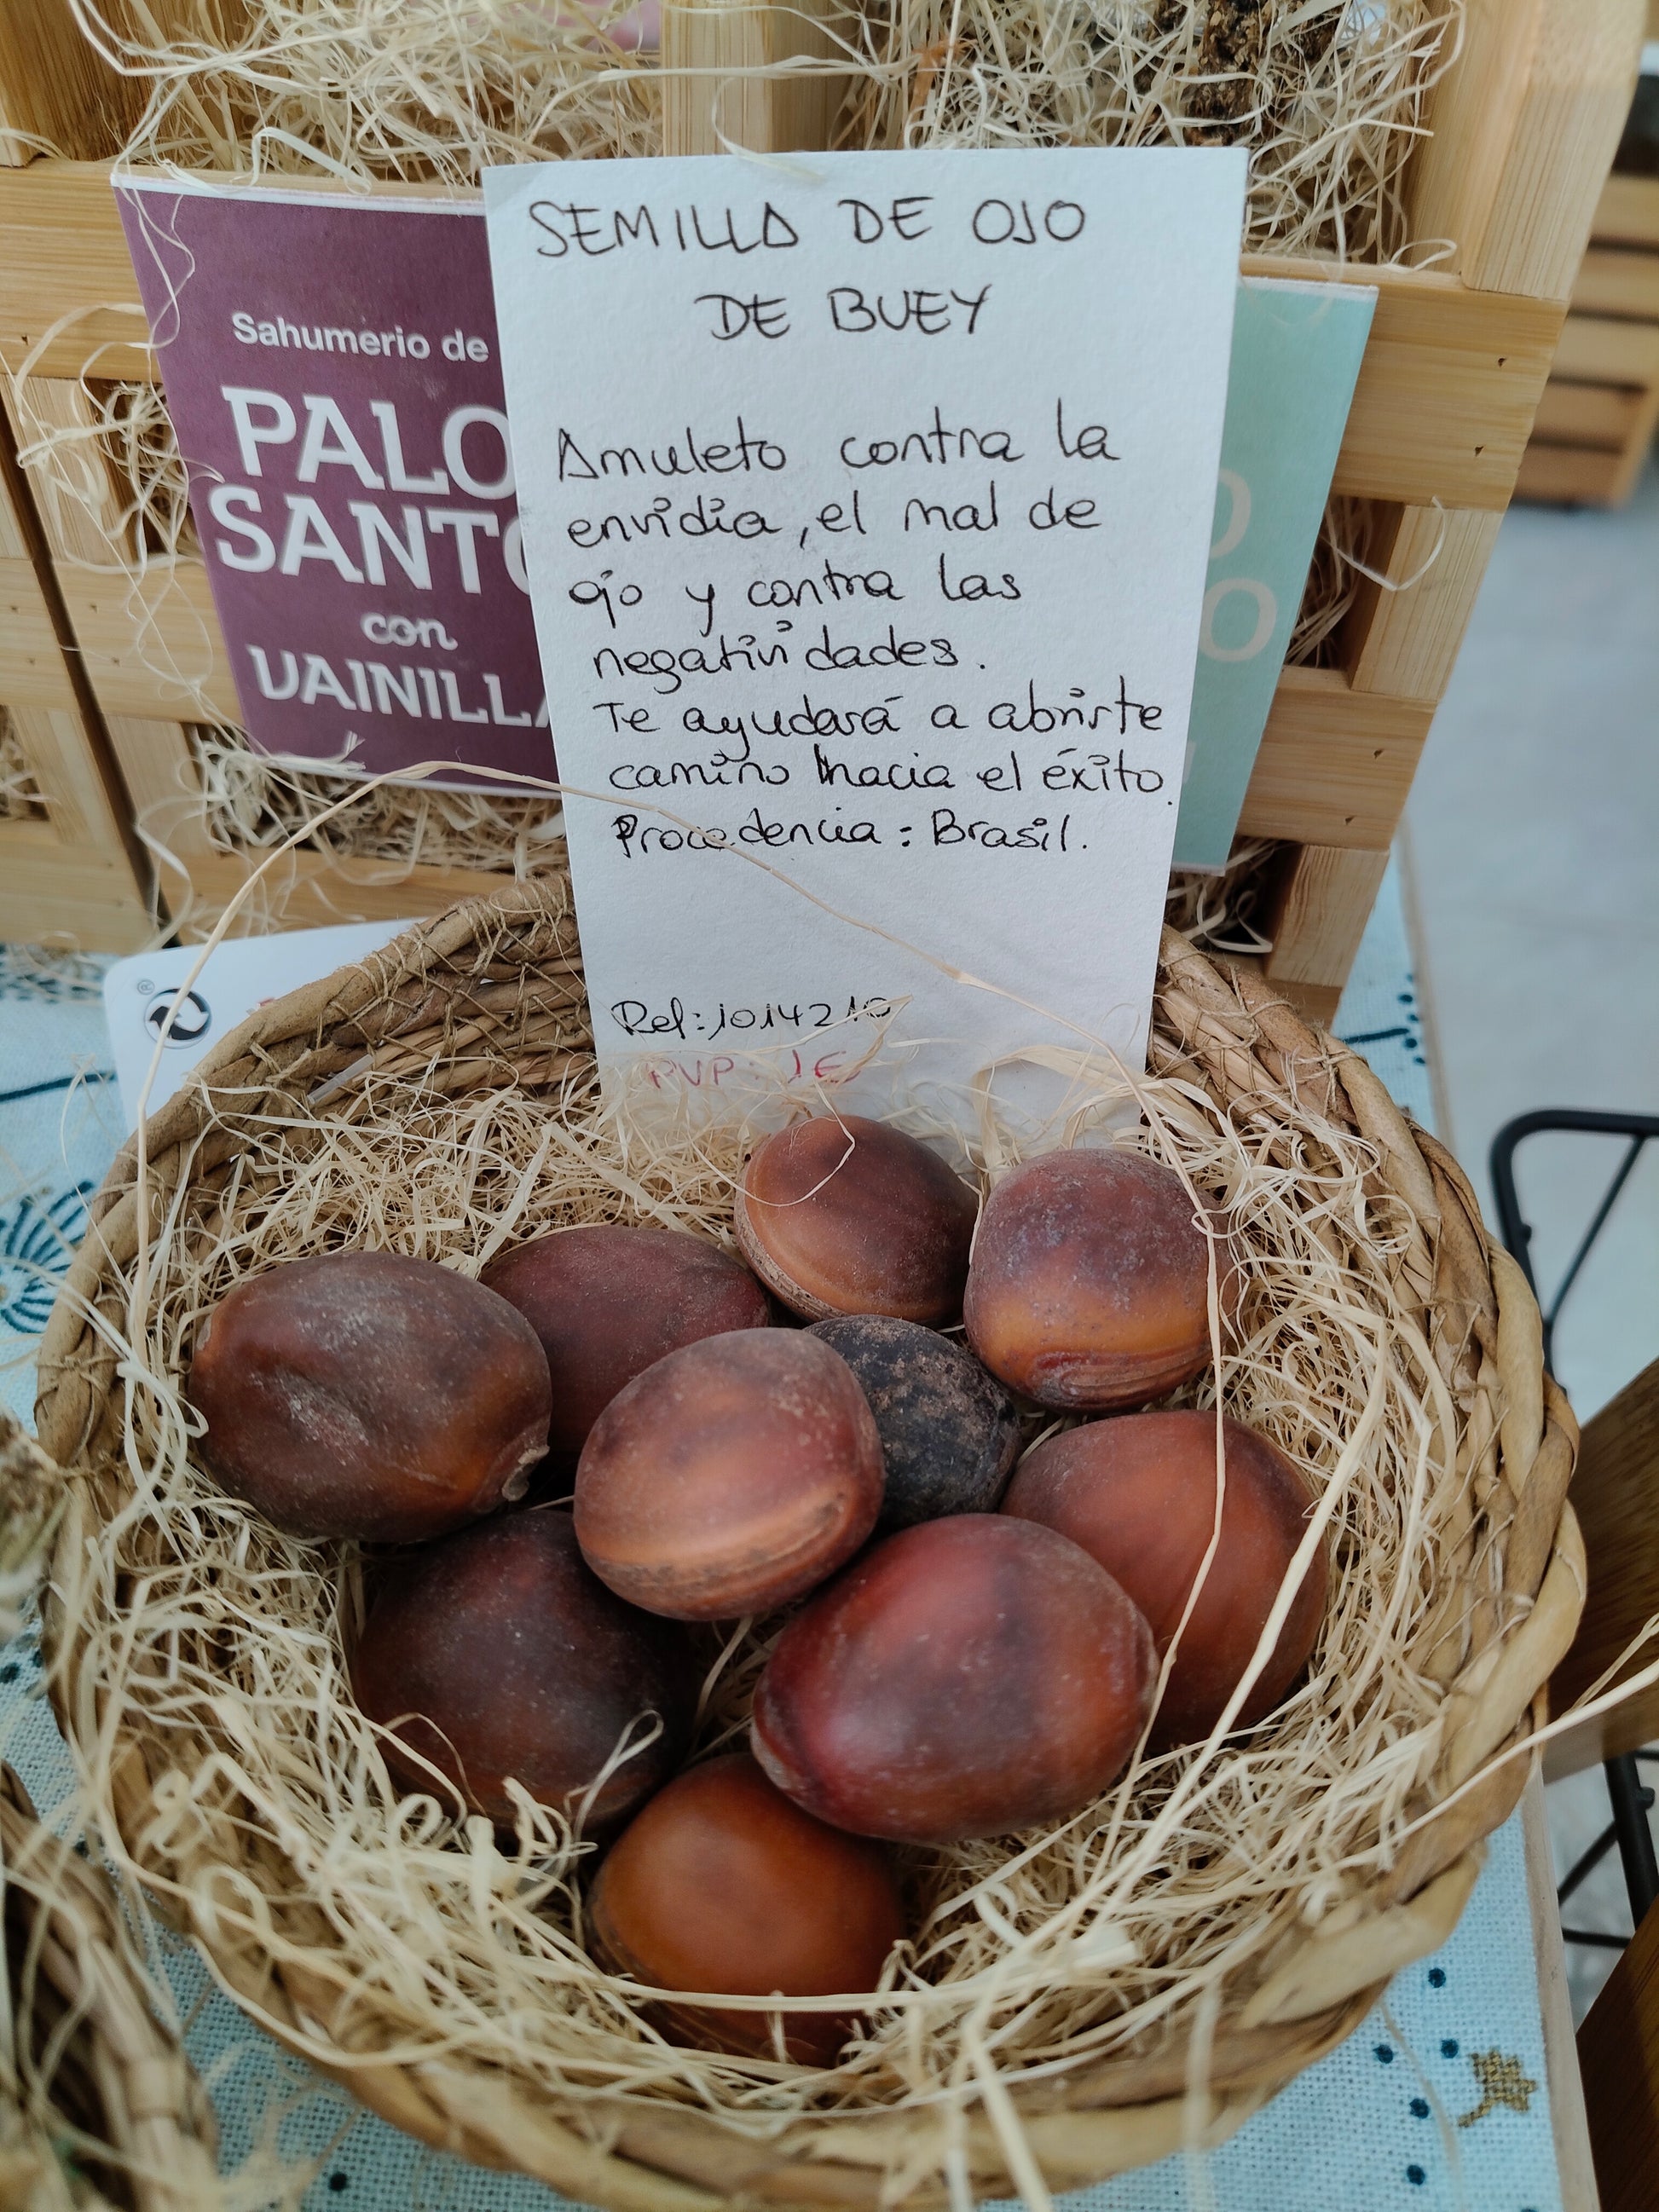 SEMILLA DE OJO
DE BUEY
Amuleto contra la
envidia, el mal de
ojo y contra las
negatividades.
Te ayudará a abrirte
camino hacia el éxito.
Procedencia: Brasil.
Ref: 1014210
PVP: 1€
Sahumerio de
PALO
SANTO
con
VAINILLA
O
O
®